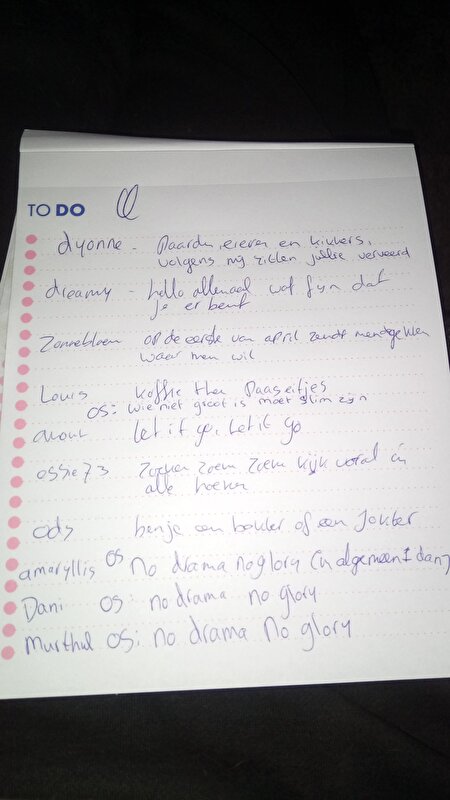 TO DO
dyonne - Paarden, eieren en kikkers,
volgens mij zitten jullie verveerd
dreamy - hello allemaal wat fijn dat
je er bent
Zonnebloem op de eerste van april zendt men de gekken
waar men wil
Louis koffie thee Paaseitjes
os: wie niet groot is moet slim zijn
let it go, let it go
ossie73 Zoeken Zoem Zoem kijk vooral in
alle hoeken
ods ben je een bokker of een Jokker
amaryllis os No drama no glory (in algemeen I dan)
Dani os: no drama no glory
Murthul os: no drama No glory